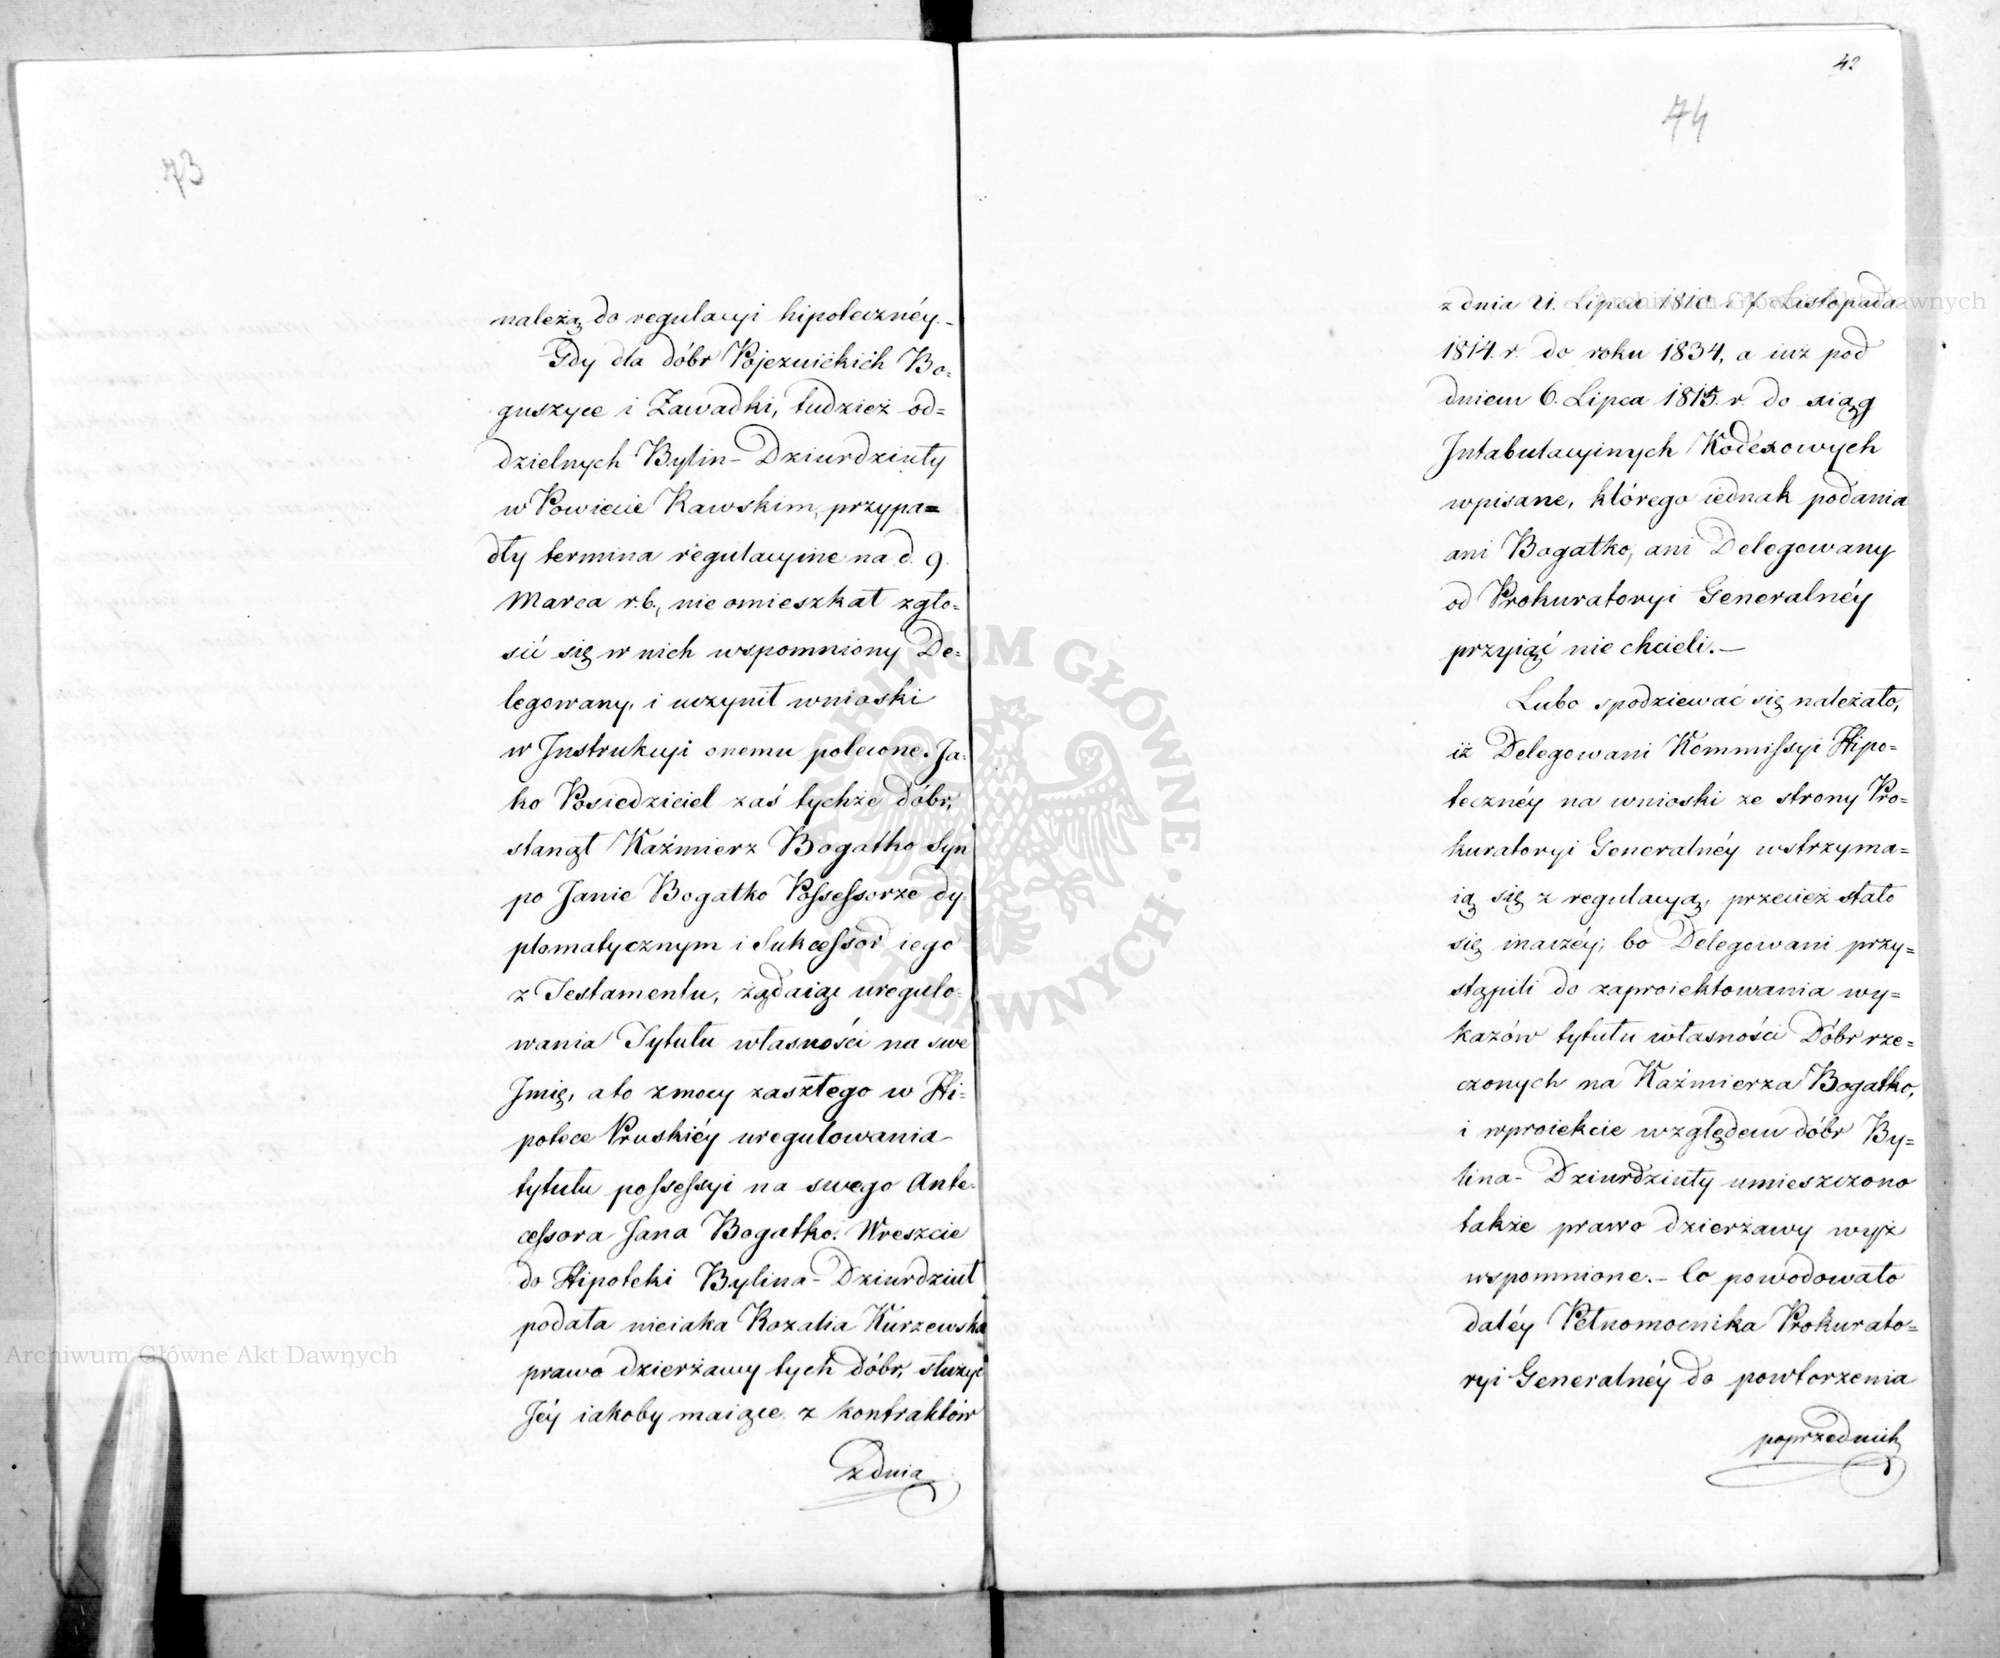 73
należą do regulacyi hipoteczney.-
Gdy dla dóbr Pojezuickich Bo=
guszyce i Zawadki, tudzież od=
dzielnych Bylin-Dziurdziuły
w Powiecie Rawskim, przypa=
dły termina regulacyine na d. 9.
Marca r.b., nie omieszkał zgło=
sić się w nich wspomniony De=
legowany, i uczynił wnioski
w Instrukcyi onemu polecone. Ja=
ko Posiedziciel zaś tychże dóbr,
stanął Kaźmierz Bogatko Syn
po Janie Bogatko Possessorze dy=
plomatycznym i Sukcessor iego
z Testamentu, żądaiąc uregulo=
wania Tytułu własności na swe
Jmię, a to z mocy zaszłego w Hi=
potece Pruskiéy uregulowania
tytułu possessyi na swego Ante=
cessora Jana Bogatko. Wreszcie
do Hipoteki Bylina-Dziurdziuł
podała nieiaka Rozalia Kurzewska
prawo dzierżawy tych dóbr, służyć
Jéy iakoby maiące z kontraktów
z dnia
42
74
z dnia 21. Lipca 1810 i 7. Listopada
1814. r. do roku 1834, a iuż pod
dniem 6. Lipca 1815. r. do xiąg
Jntabulacyinych Kodexowych
wpisane, którego iednak podania
ani Bogatko, ani Delegowany
od Prokuratoryi Generalnéy
przyiąć nie chcieli.-
Lubo spodziewać się należało,
iż Delegowani Kómmissyi Hipo=
tecznéy na wnioski ze strony Pro=
kuratoryi Generalnéy wstrzyma=
ią się z regulacyą, przecież stało
się inaczéy; bo Delegowani przy=
stąpili do zaproiektowania wy=
kazów tytułu własności Dóbr rze=
czonych na Kaźmierza Bogatko,
i w proiekcie względem dóbr By=
lina-Dziurdziuły umieszczono
także prawo dzierżawy wyż
wspomnione.- Co powodowało
daléy Pełnomocnika Prokurato=
ryi Generalnéy do powtorzenia
poprzednich
Archiwum Główne Akt Dawnych
Archiwum Główne Akt Dawnych
ARCHIWUM GŁÓWNE AKT DAWNYCH